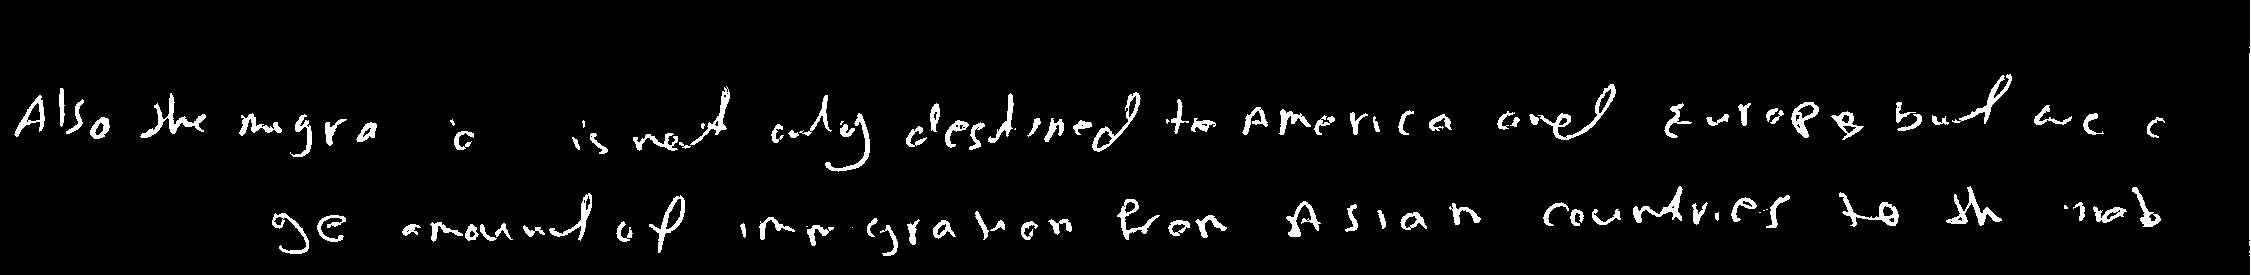 Also the migra is not only destined to America and Europe but we c
ge amount of immigration from Asian countries to th